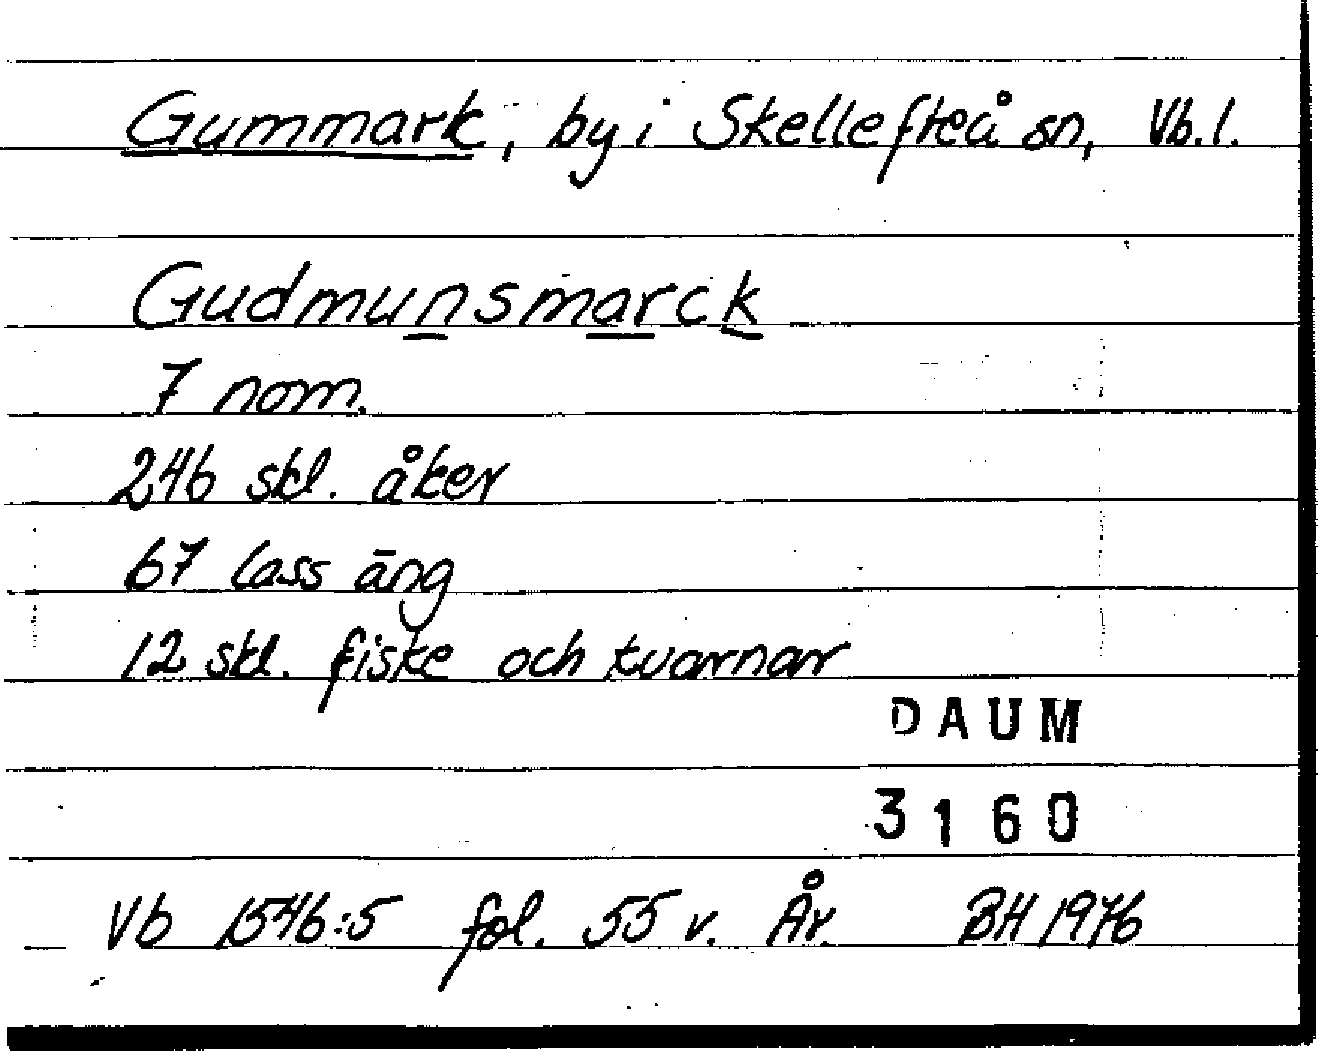 Gummark, by i Skellefteå sn, Vb. l.
Gudmunsmarck
7 nom.
246 skl. åker
67 lass äng
12 skl. fiske och kvarnar
DAUM
3160
Vb 1546:5 fol. 55 v. År. BH 1976